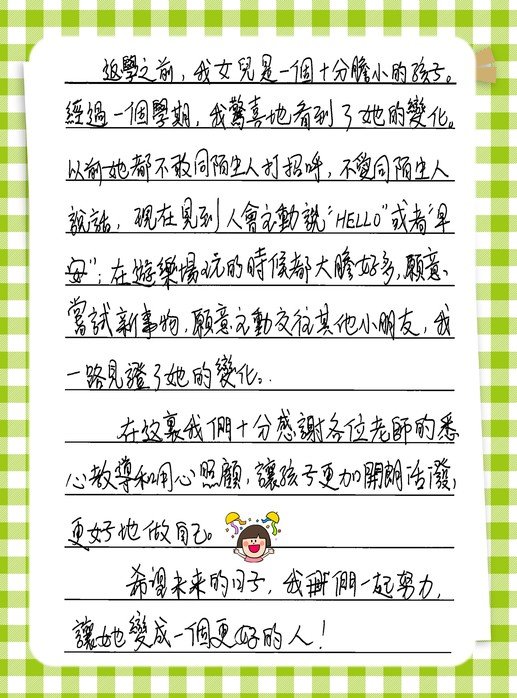 返學之前，我女兒是一個十分膽小的孩子。
經過一個學期，我驚喜地看到了她的變化。
以前她都不敢同陌生人打招呼，不愛同陌生人
說話，現在見到人會主動說“HELLO”或者“早
安”；在遊樂場玩的時候都大膽好多，願意
嘗試新事物，願意主動交往其他小朋友，我
一路見證了她的變化。
在这裏我們十分感謝各位老師的悉
心教導和用心照顧，讓孩子更加開朗活潑，
更好地做自己。
希望未來的日子，我們一起努力，
讓她變成一個更好的人！